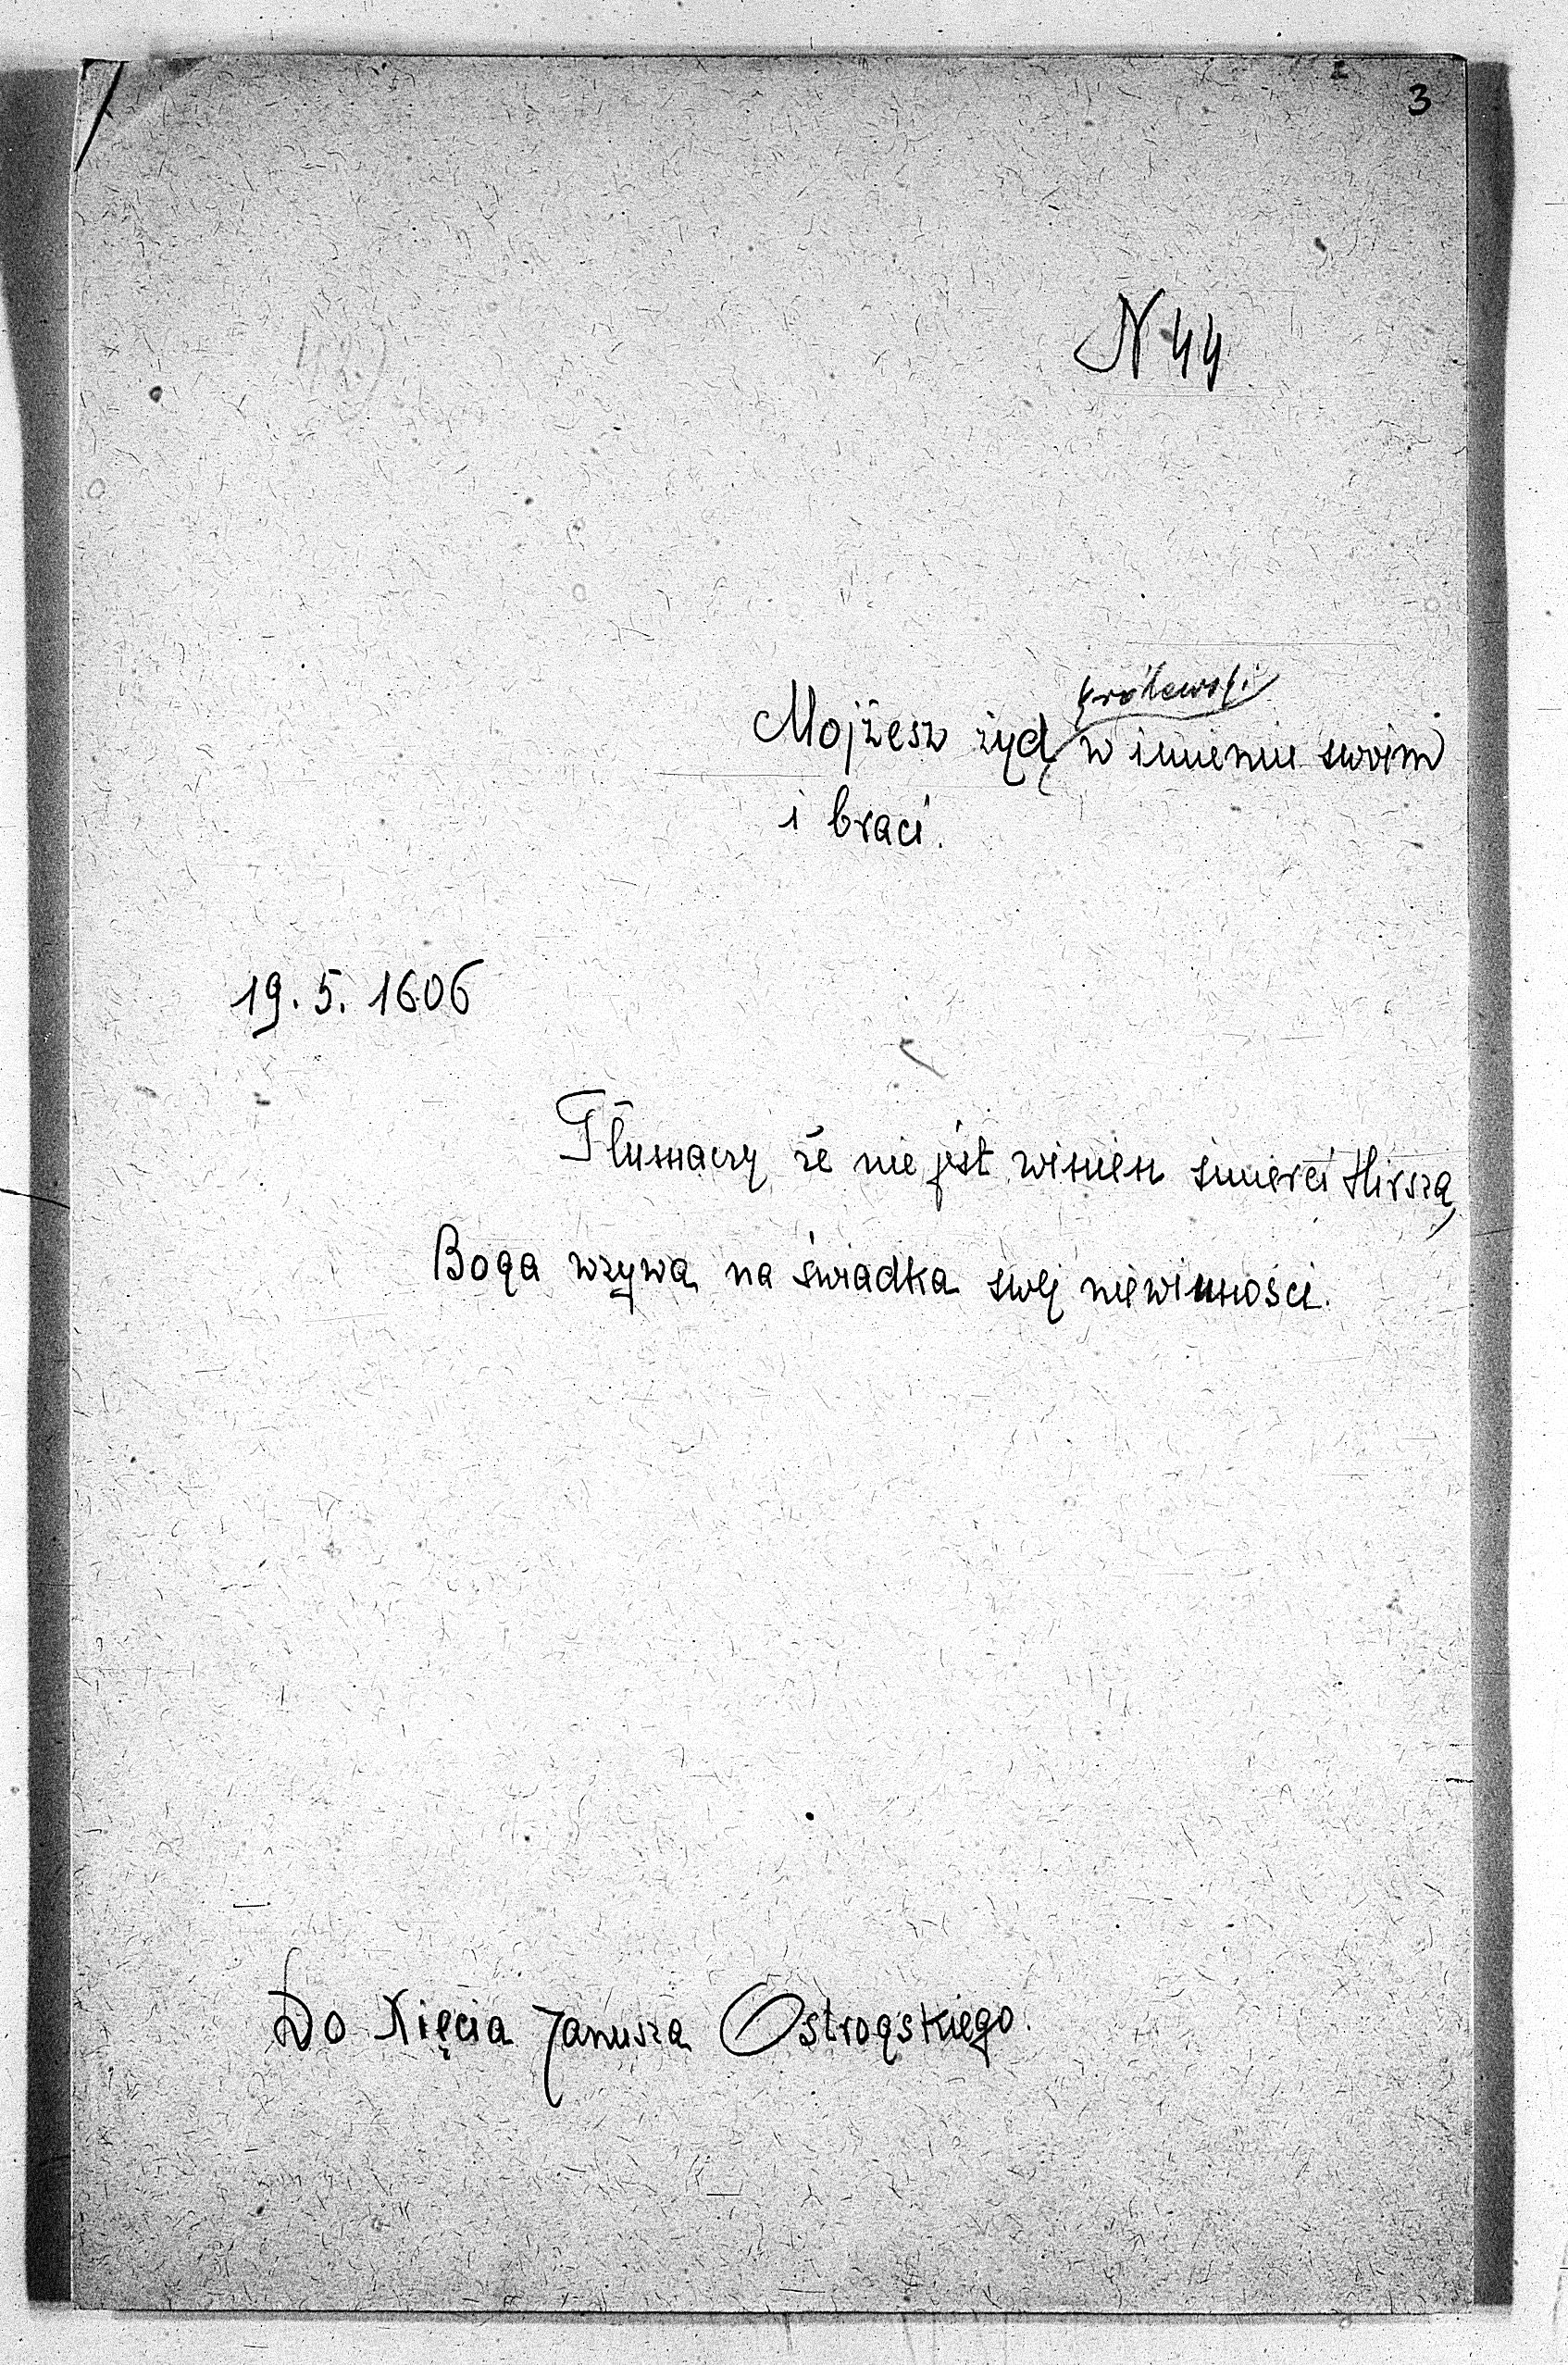 3
N 44
królewski
Mojżesz żyd w imieniu swoim
i braci.
19. 5. 1606
Tłumaczy że nie jest winien śmierci Hirsza,
Boga wzywa na świadka swej niewinności.
Do Xięcia Janusza Ostrogskiego.